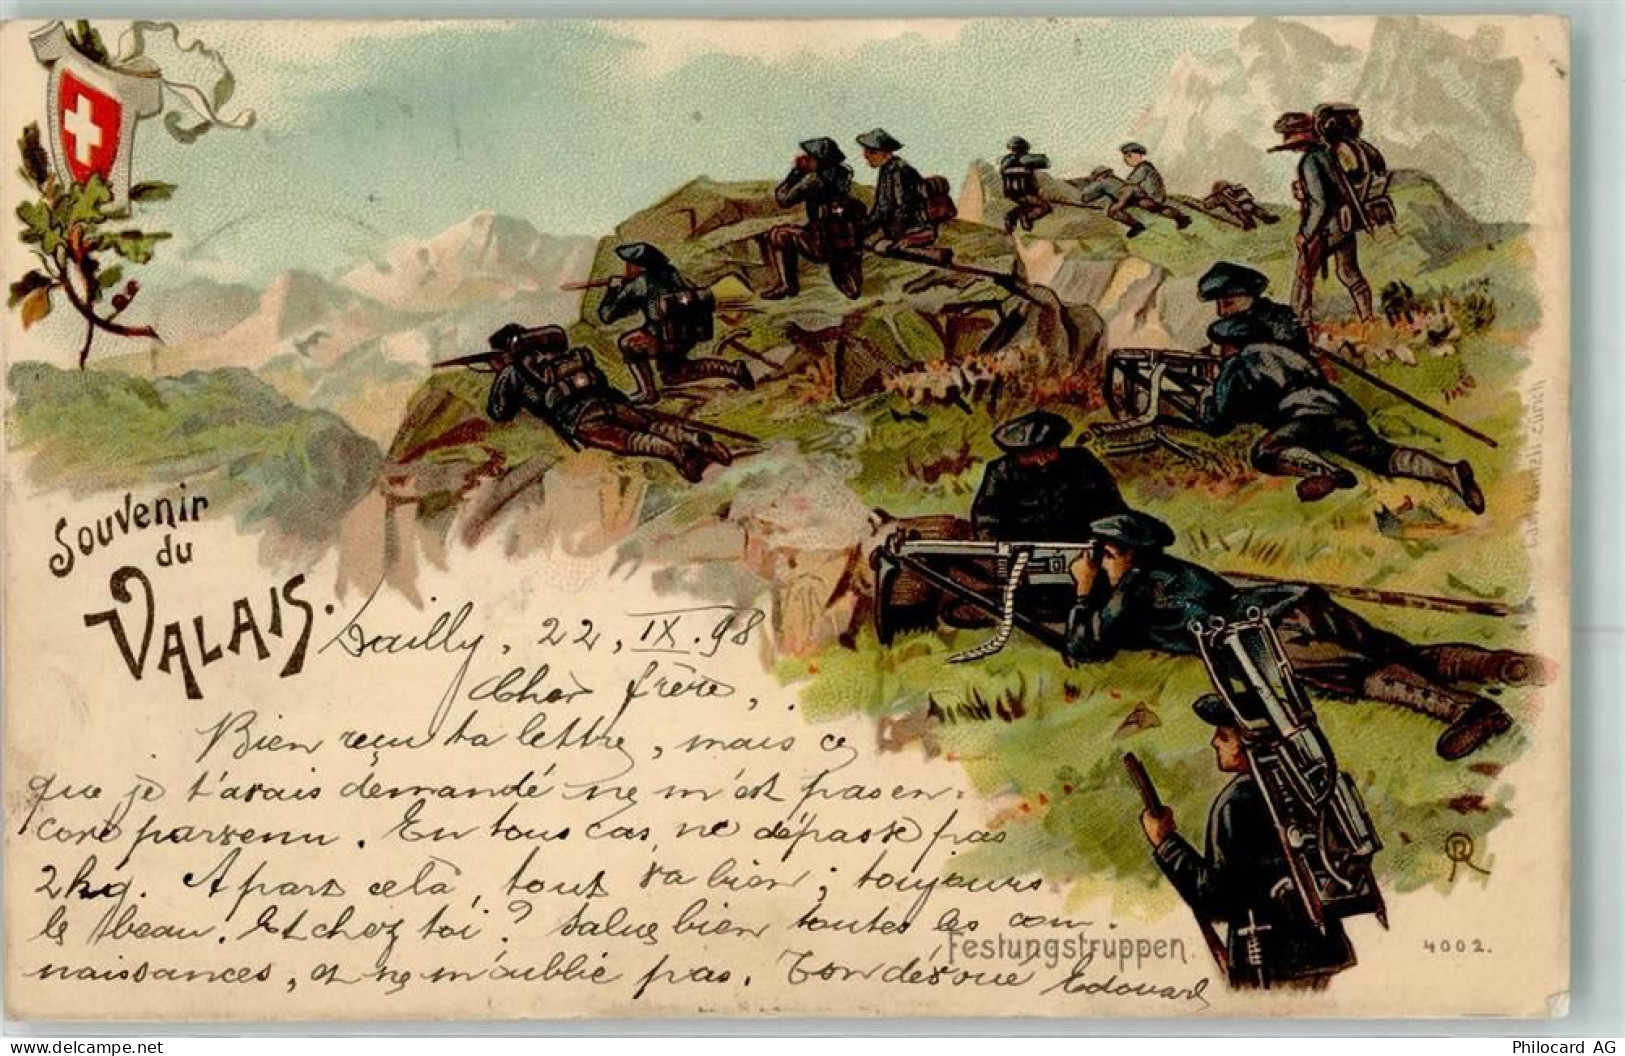 Souvenir
du
VALAIS.
Dailly, 22, IX. 98
Cher frère,
Bien reçu ta lettre, mais ce
que je t'avais demandé ne m'est pas en-
core parvenu. En tous cas, ne dépasse pas
2kg. A part celà, tout va bien; toujours
le beau. Et chez toi? Salue bien toutes les con-
naissances, et ne m'oublie pas. Ton dévoué Edouard
Festungstruppen.
4002.
Zürich
delcampe.net / Philocard AG